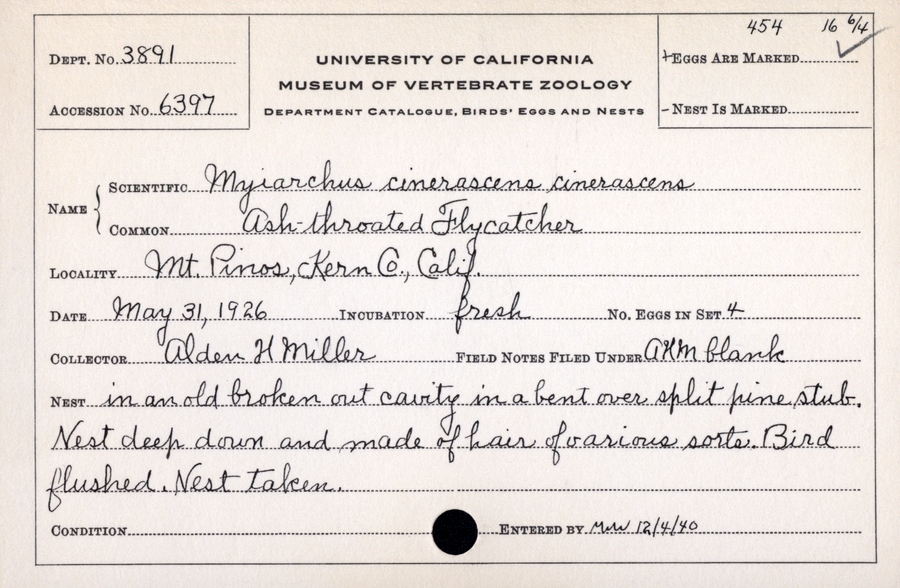 454 16 6/4
Dept. No. 3891
UNIVERSITY OF CALIFORNIA
+Eggs Are Marked
MUSEUM OF VERTEBRATE ZOOLOGY
Accession No. 6397
Department Catalogue, Birds' Eggs and Nests
-Nest Is Marked
Name
Scientific Myiarchus cinerascens cinerascens
Common Ash-throated Flycatcher
Locality Mt. Pinos, Kern Co., Calif.
Date May 31, 1926 Incubation fresh No. Eggs in Set 4
Collector Alden H Miller Field Notes Filed Under AHM blank
Nest in an old broken out cavity in a bent over split pine stub.
Nest deep down and made of hair of various sorts. Bird
flushed. Nest taken.
Condition Entered by 12/4/40